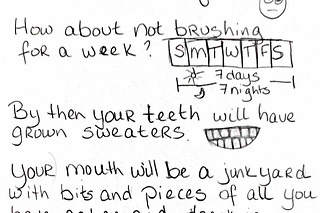 How about not brushing
for a week? S M T W T F S
7 days
7 nights
By then your teeth will have
grown sweaters.
Your mouth will be a junkyard
with bits and pieces of all you